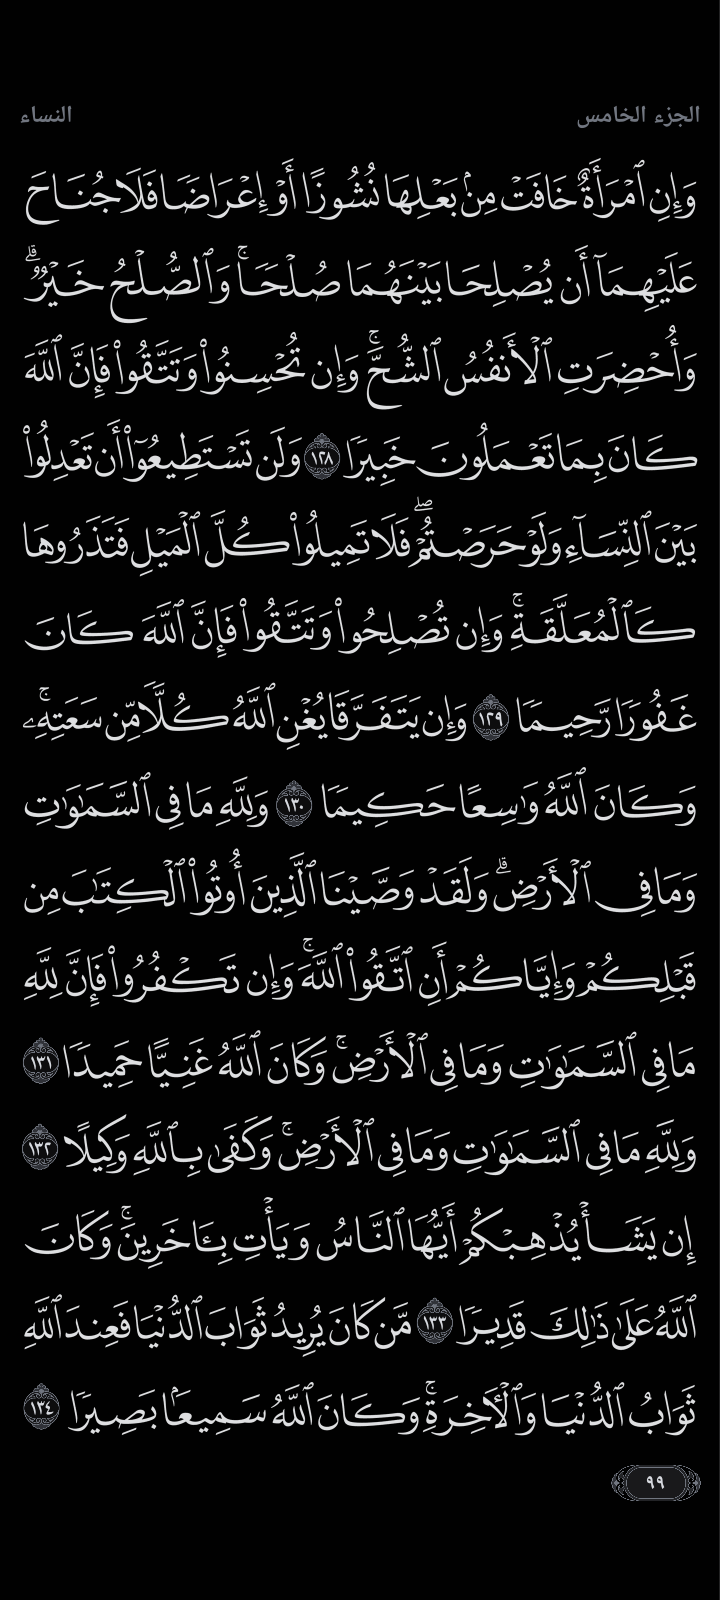 الجزء الخامس
النساء
وَإِنِ ٱمْرَأَةٌ خَافَتْ مِنۢ بَعْلِهَا نُشُوزًا أَوْ إِعْرَاضًا فَلَا جُنَاحَ
عَلَيْهِمَآ أَن يُصْلِحَا بَيْنَهُمَا صُلْحًا ۚ وَٱلصُّلْحُ خَيْرٌ ۗ
وَأُحْضِرَتِ ٱلْأَنفُسُ ٱلشُّحَّ ۚ وَإِن تُحْسِنُوا۟ وَتَتَّقُوا۟ فَإِنَّ ٱللَّهَ
كَانَ بِمَا تَعْمَلُونَ خَبِيرًا ١٢٨ وَلَن تَسْتَطِيعُوٓا۟ أَن تَعْدِلُوا۟
بَيْنَ ٱلنِّسَآءِ وَلَوْ حَرَصْتُمْ ۖ فَلَا تَمِيلُوا۟ كُلَّ ٱلْمَيْلِ فَتَذَرُوهَا
كَٱلْمُعَلَّقَةِ ۚ وَإِن تُصْلِحُوا۟ وَتَتَّقُوا۟ فَإِنَّ ٱللَّهَ كَانَ
غَفُورًا رَّحِيمًا ١٢٩ وَإِن يَتَفَرَّقَا يُغْنِ ٱللَّهُ كُلًّا مِّن سَعَتِهِۦ ۚ
وَكَانَ ٱللَّهُ وَٰسِعًا حَكِيمًا ١٣٠ وَلِلَّهِ مَا فِى ٱلسَّمَٰوَٰتِ
وَمَا فِى ٱلْأَرْضِ ۗ وَلَقَدْ وَصَّيْنَا ٱلَّذِينَ أُوتُوا۟ ٱلْكِتَٰبَ مِن
قَبْلِكُمْ وَإِيَّاكُمْ أَنِ ٱتَّقُوا۟ ٱللَّهَ ۚ وَإِن تَكْفُرُوا۟ فَإِنَّ لِلَّهِ
مَا فِى ٱلسَّمَٰوَٰتِ وَمَا فِى ٱلْأَرْضِ ۚ وَكَانَ ٱللَّهُ غَنِيًّا حَمِيدًا ١٣١
وَلِلَّهِ مَا فِى ٱلسَّمَٰوَٰتِ وَمَا فِى ٱلْأَرْضِ ۚ وَكَفَىٰ بِٱللَّهِ وَكِيلًا ١٣٢
إِن يَشَأْ يُذْهِبْكُمْ أَيُّهَا ٱلنَّاسُ وَيَأْتِ بِـَٔاخَرِينَ ۚ وَكَانَ
ٱللَّهُ عَلَىٰ ذَٰلِكَ قَدِيرًا ١٣٣ مَّن كَانَ يُرِيدُ ثَوَابَ ٱلدُّنْيَا فَعِندَ ٱللَّهِ
ثَوَابُ ٱلدُّنْيَا وَٱلْـَٔاخِرَةِ ۚ وَكَانَ ٱللَّهُ سَمِيعًۢا بَصِيرًا ١٣٤
٩٩